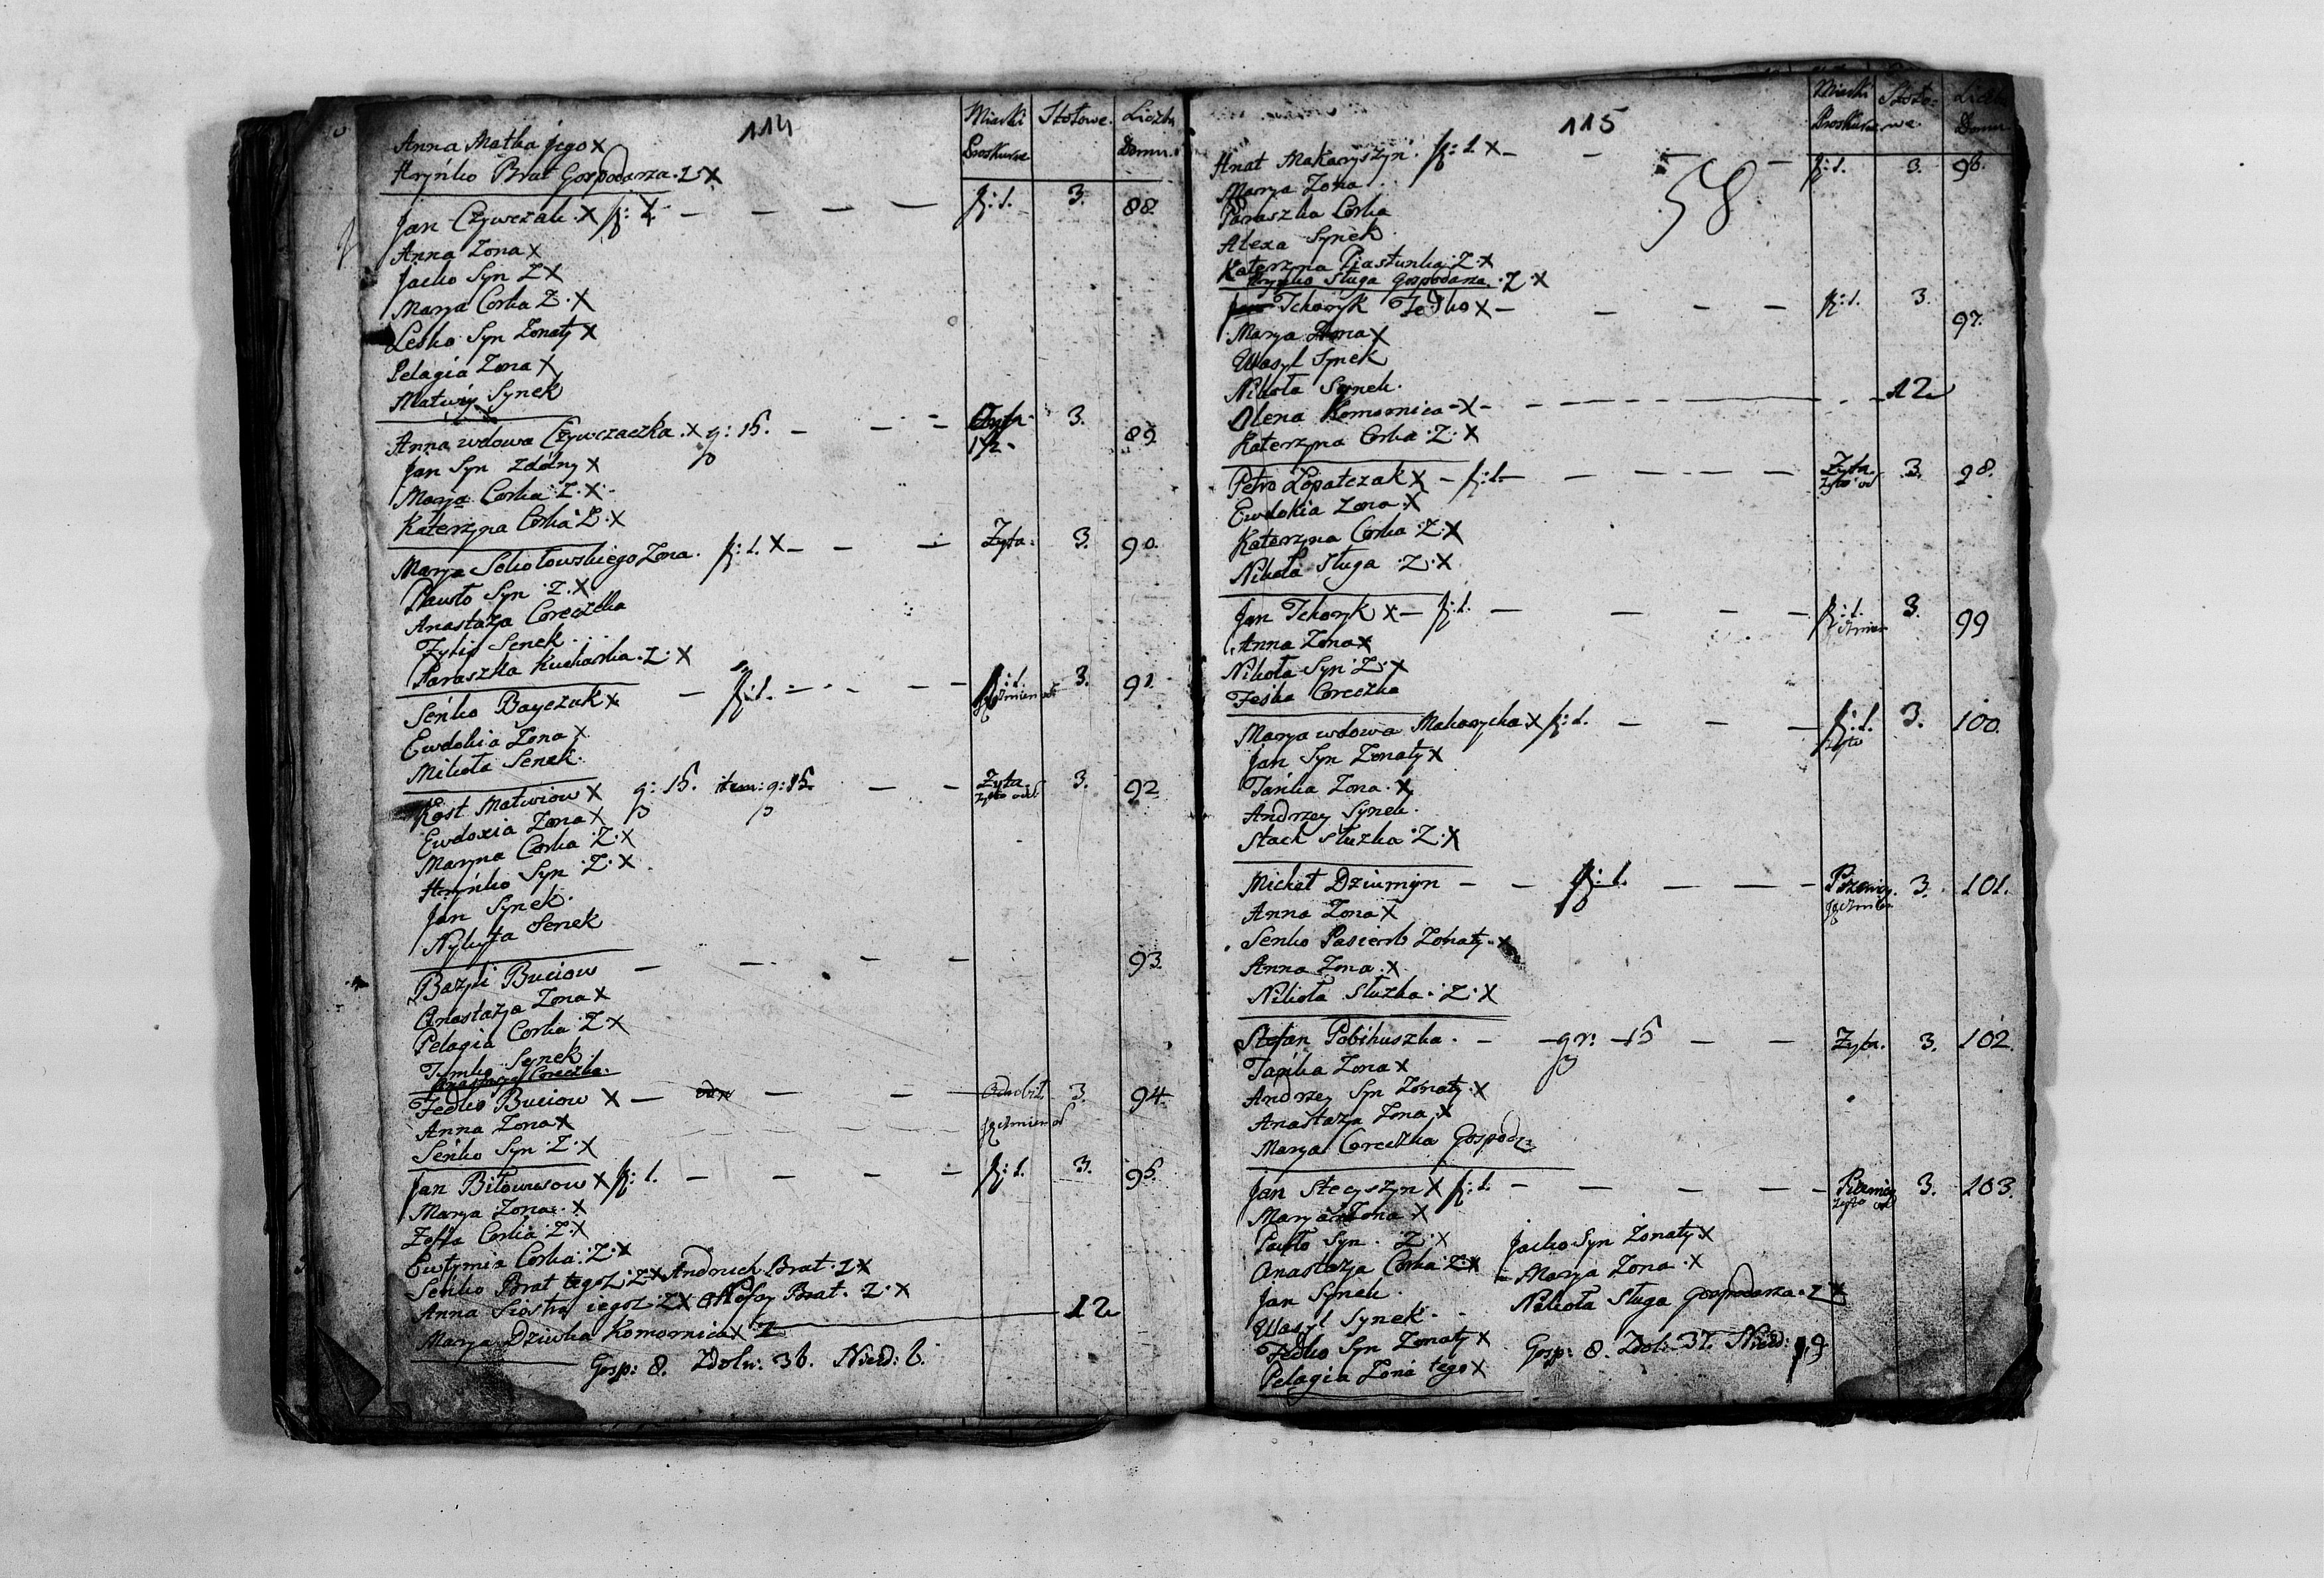 114
Miarki Stołowe. Liczba
Proskurne Domu.
Anna Matka jego X
Hryńko Brat Gospodarza. Z X
Jan Czywczak. X f: 1. — — — — f: 1. 3. 88.
Anna Zona X
Jacko Syn Z X
Marya Corka Z. X
Lesko Syn Zonaty X
Pelagia Zona X
Matwiy Synek
Anna wdowa Czywczaczka. X g: 15. — — — 1/2 3. 89.
Jan Syn zdolny X
Marya Corka Z. X
Katerzyna Corka Z. X
Marya Sokołowskiego Zona. f: 1. X — — — Zyta. 3. 90.
Pawło Syn Z. X
Anastazya Coreczka
Synek
Paraszka Kucharka. Z: X
Seńko Bayczuk X — f: 1. — — — f: 1. 3. 91.
Jęczmien
Ewdokia Zona X
Mikoła Senek.
Kost Matwiow X g: 15. item: g: 15. — — Zyta 3. 92.
Zyto odd
Ewdoxia Zona X
Maryna Corka Z. X
Hryńko Syn Z. X
Jan Synek.
Nykyta Senek
Bazyli Buciow — — — — 93.
Anastazya Zona X
Pelagia Corka Z X
Tymko Synek
Anastazya Coreczka.
Fedko Buciow X — — — — Odrobił. 3. 94.
Jęczmien od
Anna Zona X
Seńko Syn Z. X
Jan Biłousow X f: 1. — — — — f: 1. 3. 95.
Marya Zona. X
Zofia Corka Z. X
Eutymia Corka. Z. X
Seńko Brat tegoz Z X Andruch Brat. Z X
Anna Siostra iegoz Z X Brat. Z. X
Marya Dziwka Komornica X Z 12
Gosp: 8. Zdoln: 36. Niezd: 6.
115
Miarki Stoło- Liczba
Proskurne we. Domu
58
Hnat Makaryszyn. f: 1. X — — — — f: 1. 3. 96.
Marya Zona.
Paraszka Corka
Alexa Synek.
Katerzyna Piastunka. Z. X
Hryńko Sługa Gospodarza. Z. X
Tchoryk Fedko X — — — — f: 1. 3. 97.
Marya Zona X
Wasyl Synek
Nikoła Synek.
Olena Komornica — X — — — — 12
Katerzyna Corka. Z. X
Petro Łopatczak X — f: 1. — — — — Zyta. 3. 98.
Zyto od
Ewdokia Zona. X
Katerzyna Corka. Z. X
Nikoła Sługa. Z. X
Jan Tchoryk X — f: 1. — — — — f: 1. 3. 99
Jęczmien
Anna Zona X
Nikoła Syn Z. X
Feśka Coreczka
Marya wdowa Makarycha X f: 1. — — — f: 1. 3. 100.
Zyto
Jan Syn Zonaty X
Tańka Zona. X
Andrzey Synek.
Stach Służka Z. X
Michał Dziumyn — — f: 1. — — — Pszenicy. 3. 101.
Jęczmien
Anna Zona X
Senko Pasierb Zonaty. X
Anna Zona. X
Nikoła Służka. Z. X
Stefan Pobihuszka. — gr: 15 — — Zyta. 3. 102.
Tańka Zona X
Andrzey Syn Zonaty. X
Anastazya Zona X
Marya Coreczka Gospodz
Jan Stecyszyn X f: 1. — — — — Pszenicy 3. 103.
Zyto od
Marya Zona X
Pawło Syn. Z. X Jacko Syn Zonaty X
Anastazya Corka Z. X — Marya Zona. X
Jan Synek. Nikoła Sługa Gospodarza. Z X
Wasyl Synek.
Fedko Syn Zonaty X Gosp: 8. Zdol: 37. Niezd: 9
Pelagia Zona tego X